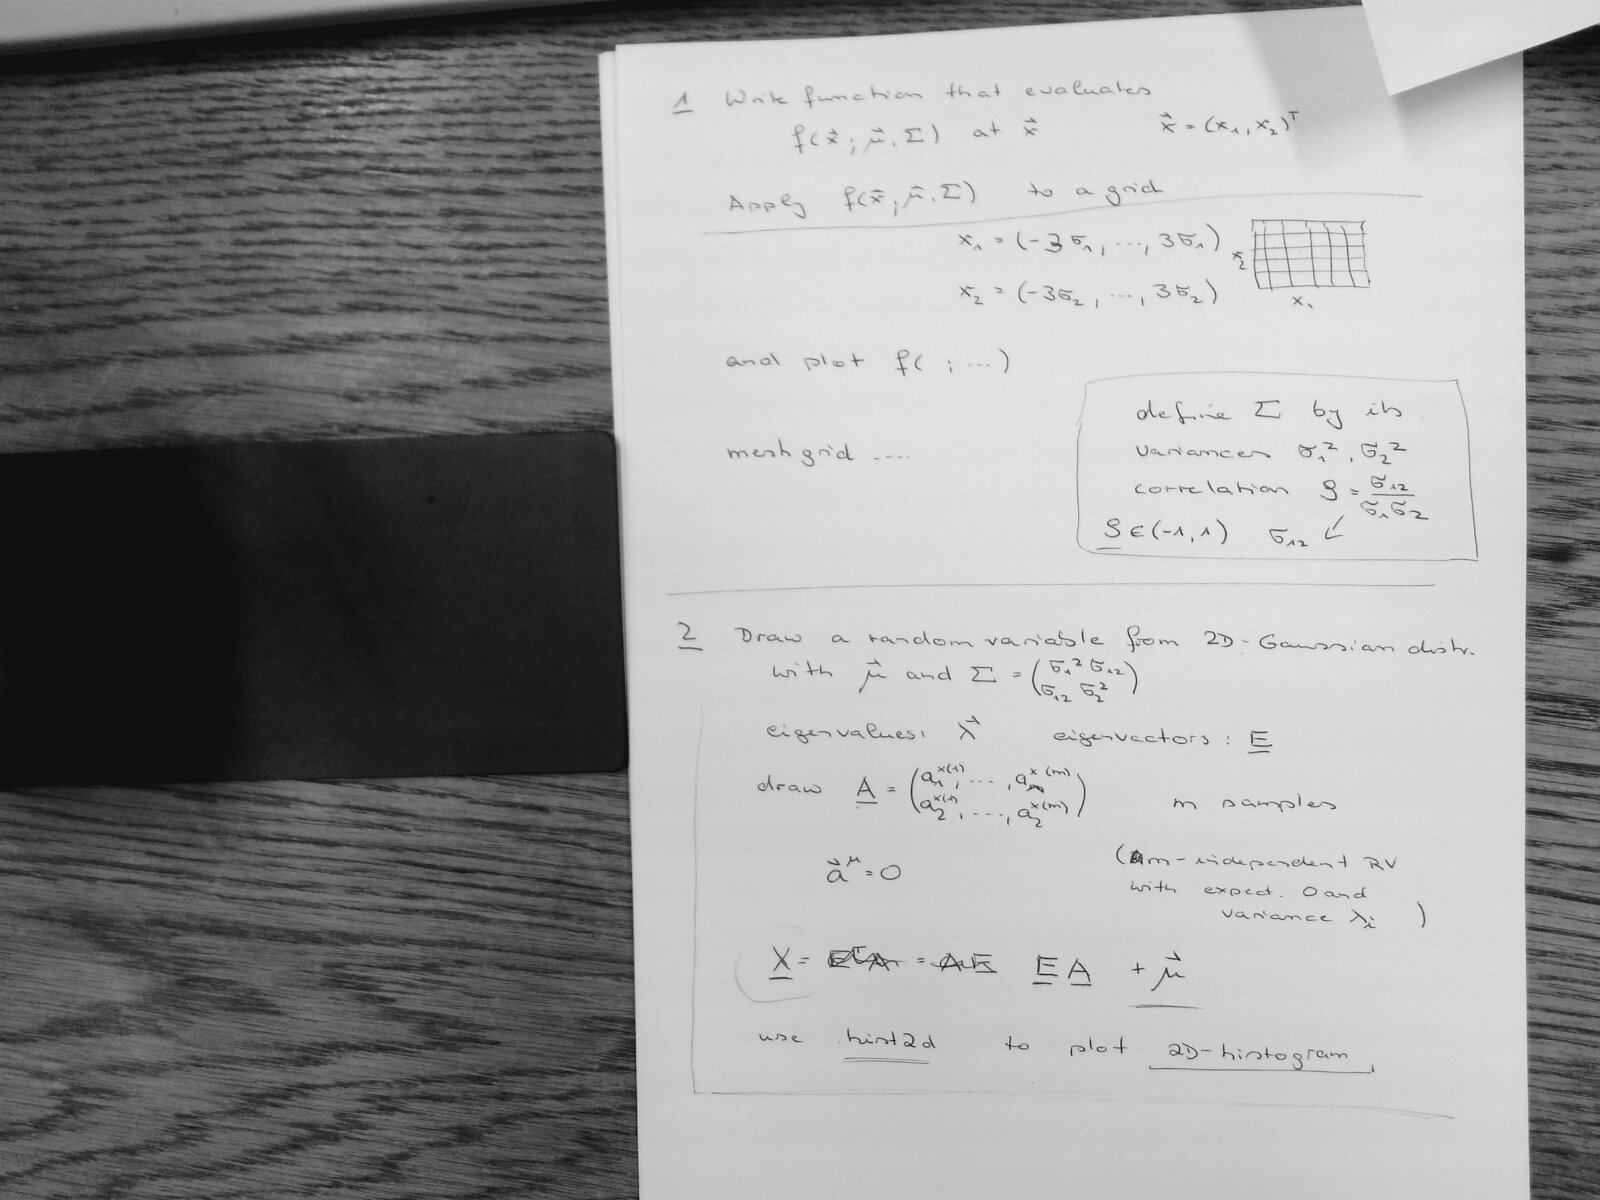 1 Write function that evaluates
f(x⃗ ; μ⃗, Σ) at x⃗ x⃗ = (x₁, x₂)ᵀ
Apply f(x⃗; μ⃗, Σ) to a grid
x₁ = (-3σ₁, ..., 3σ₁)
x₂ = (-3σ₂, ..., 3σ₂)
x₂
x₁
and plot f( ; ...)
meshgrid ....
define Σ by its
variances σ₁², σ₂²
correlation ρ = σ₁₂/σ₁σ₂
ρ ∈ (-1, 1) σ₁₂ ↙
2 Draw a random variable from 2D-Gaussian distr.
with μ⃗ and Σ = (σ₁² σ₁₂
σ₁₂ σ₂²)
eigenvalues: λ⃗ eigenvectors: E
draw A = (a₁ˣ⁽¹⁾, ..., a₁ˣ⁽ᵐ⁾
a₂ˣ⁽¹⁾, ..., a₂ˣ⁽ᵐ⁾) m samples
a⃗^μ = 0 (m-independent RV
with expect. 0 and
variance λᵢ )
X = EᵀA = AE EA + μ⃗
use hist2d to plot 2D-histogram